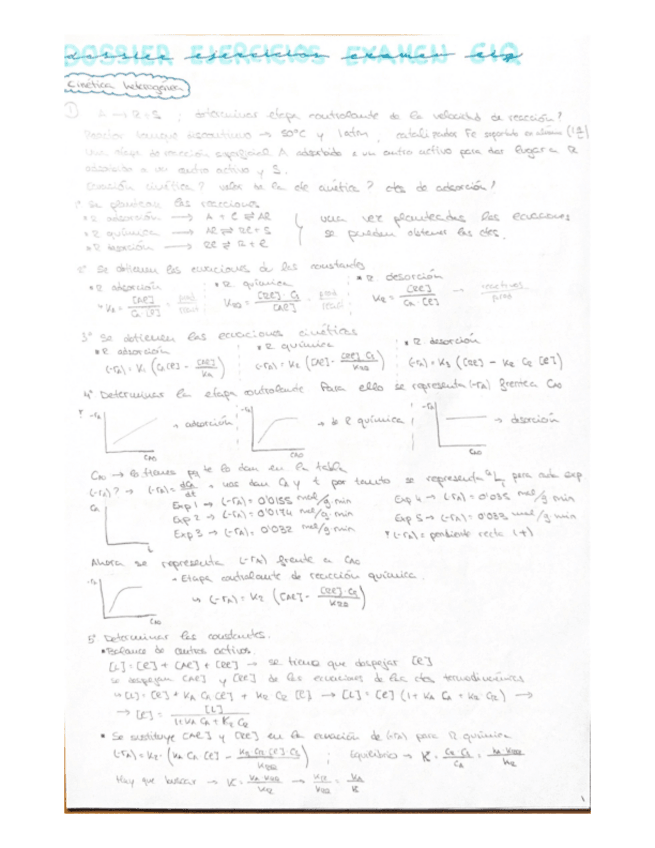 DOSSIER EJERCICIOS EXAMEN CIQ
dossier ejercicios examen ciq
Cinética heterogénea
① A → R+S ; determinar etapa controlante de la velocidad de reacción?
Reactor tanque discontinuo → 50°C y 1 atm, catalizador Fe soportado en
Una etapa de reacción superficial A adsorbido a un centro activo para dar lugar a R
adsorbido a un centro activo y S.
Ecuación cinética? valor de la cte cinética? ctes de adsorción?
1º Se plantean las reacciones
• R adsorción → A + l ⇌ Al
• R química → Al ⇌ Rl + S
• R desorción → Rl ⇌ R + l
una vez planteadas las ecuaciones
se pueden obtener las ctes.
2º Se obtienen las ecuaciones de las constantes
• R adsorción • R química • R desorción
↳ KA = [Al] / CA·[l] = prod/react KRQ = [Rl]·CS / [Al] = prod/react KR = [Rl] / CR·[l] → reactivos/prod
3º Se obtienen las ecuaciones cinéticas
• R adsorción • R química • R desorción
(-rA) = K1 (CA[l] - [Al]/KA) (-rA) = K2 ([Al] - [Rl]·CS/KRQ) (-rA) = K3 ([Rl] - KR CR [l])
4º Determinar la etapa controlante Para ello se representa (-rA) frente a CAO
-rA CAO → adsorción -rA CAO → de R química -rA CAO → desorción
CAO → lo tienes pq te lo dan en la tabla
(-rA)? → (-rA) = dCA/dt = nos dan CA y t por tanto se representa para cada exp
CA t
Exp 1 → (-rA) = 0'0155 mol/g·min Exp 4 → (-rA) = 0'035 mol/g·min
Exp 2 → (-rA) = 0'0174 mol/g·min Exp 5 → (-rA) = 0'033 mol/g·min
Exp 3 → (-rA) = 0'032 mol/g·min * (-rA) = pendiente recta (+)
Ahora se representa (-rA) frente a CAO
-rA CAO
- Etapa controlante de reacción química.
↳ (-rA) = K2 ([Al] - [Rl]·CS/KRQ)
5º Determinar las constantes.
• Balance de centros activos.
[L] = [l] + [Al] + [Rl] → se tiene que despejar [l]
se despejan [Al] y [Rl] de las ecuaciones de las ctes termodinámicas
↳ [L] = [l] + KA CA [l] + KR CR [l] → [L] = [l] (1 + KA CA + KR CR) →
→ [l] = [L] / 1 + KA CA + KR CR
• Se sustituye [Al] y [Rl] en la ecuación de (-rA) para R química
(-rA) = K2 · (KA CA [l] - KR CR [l] CS / KRQ) ; Equilibrio → K = CR·CS/CA = KA·KRQ/KR
Hay que buscar → K = KA·KRQ/KR → KR/KRQ = KA/K
1